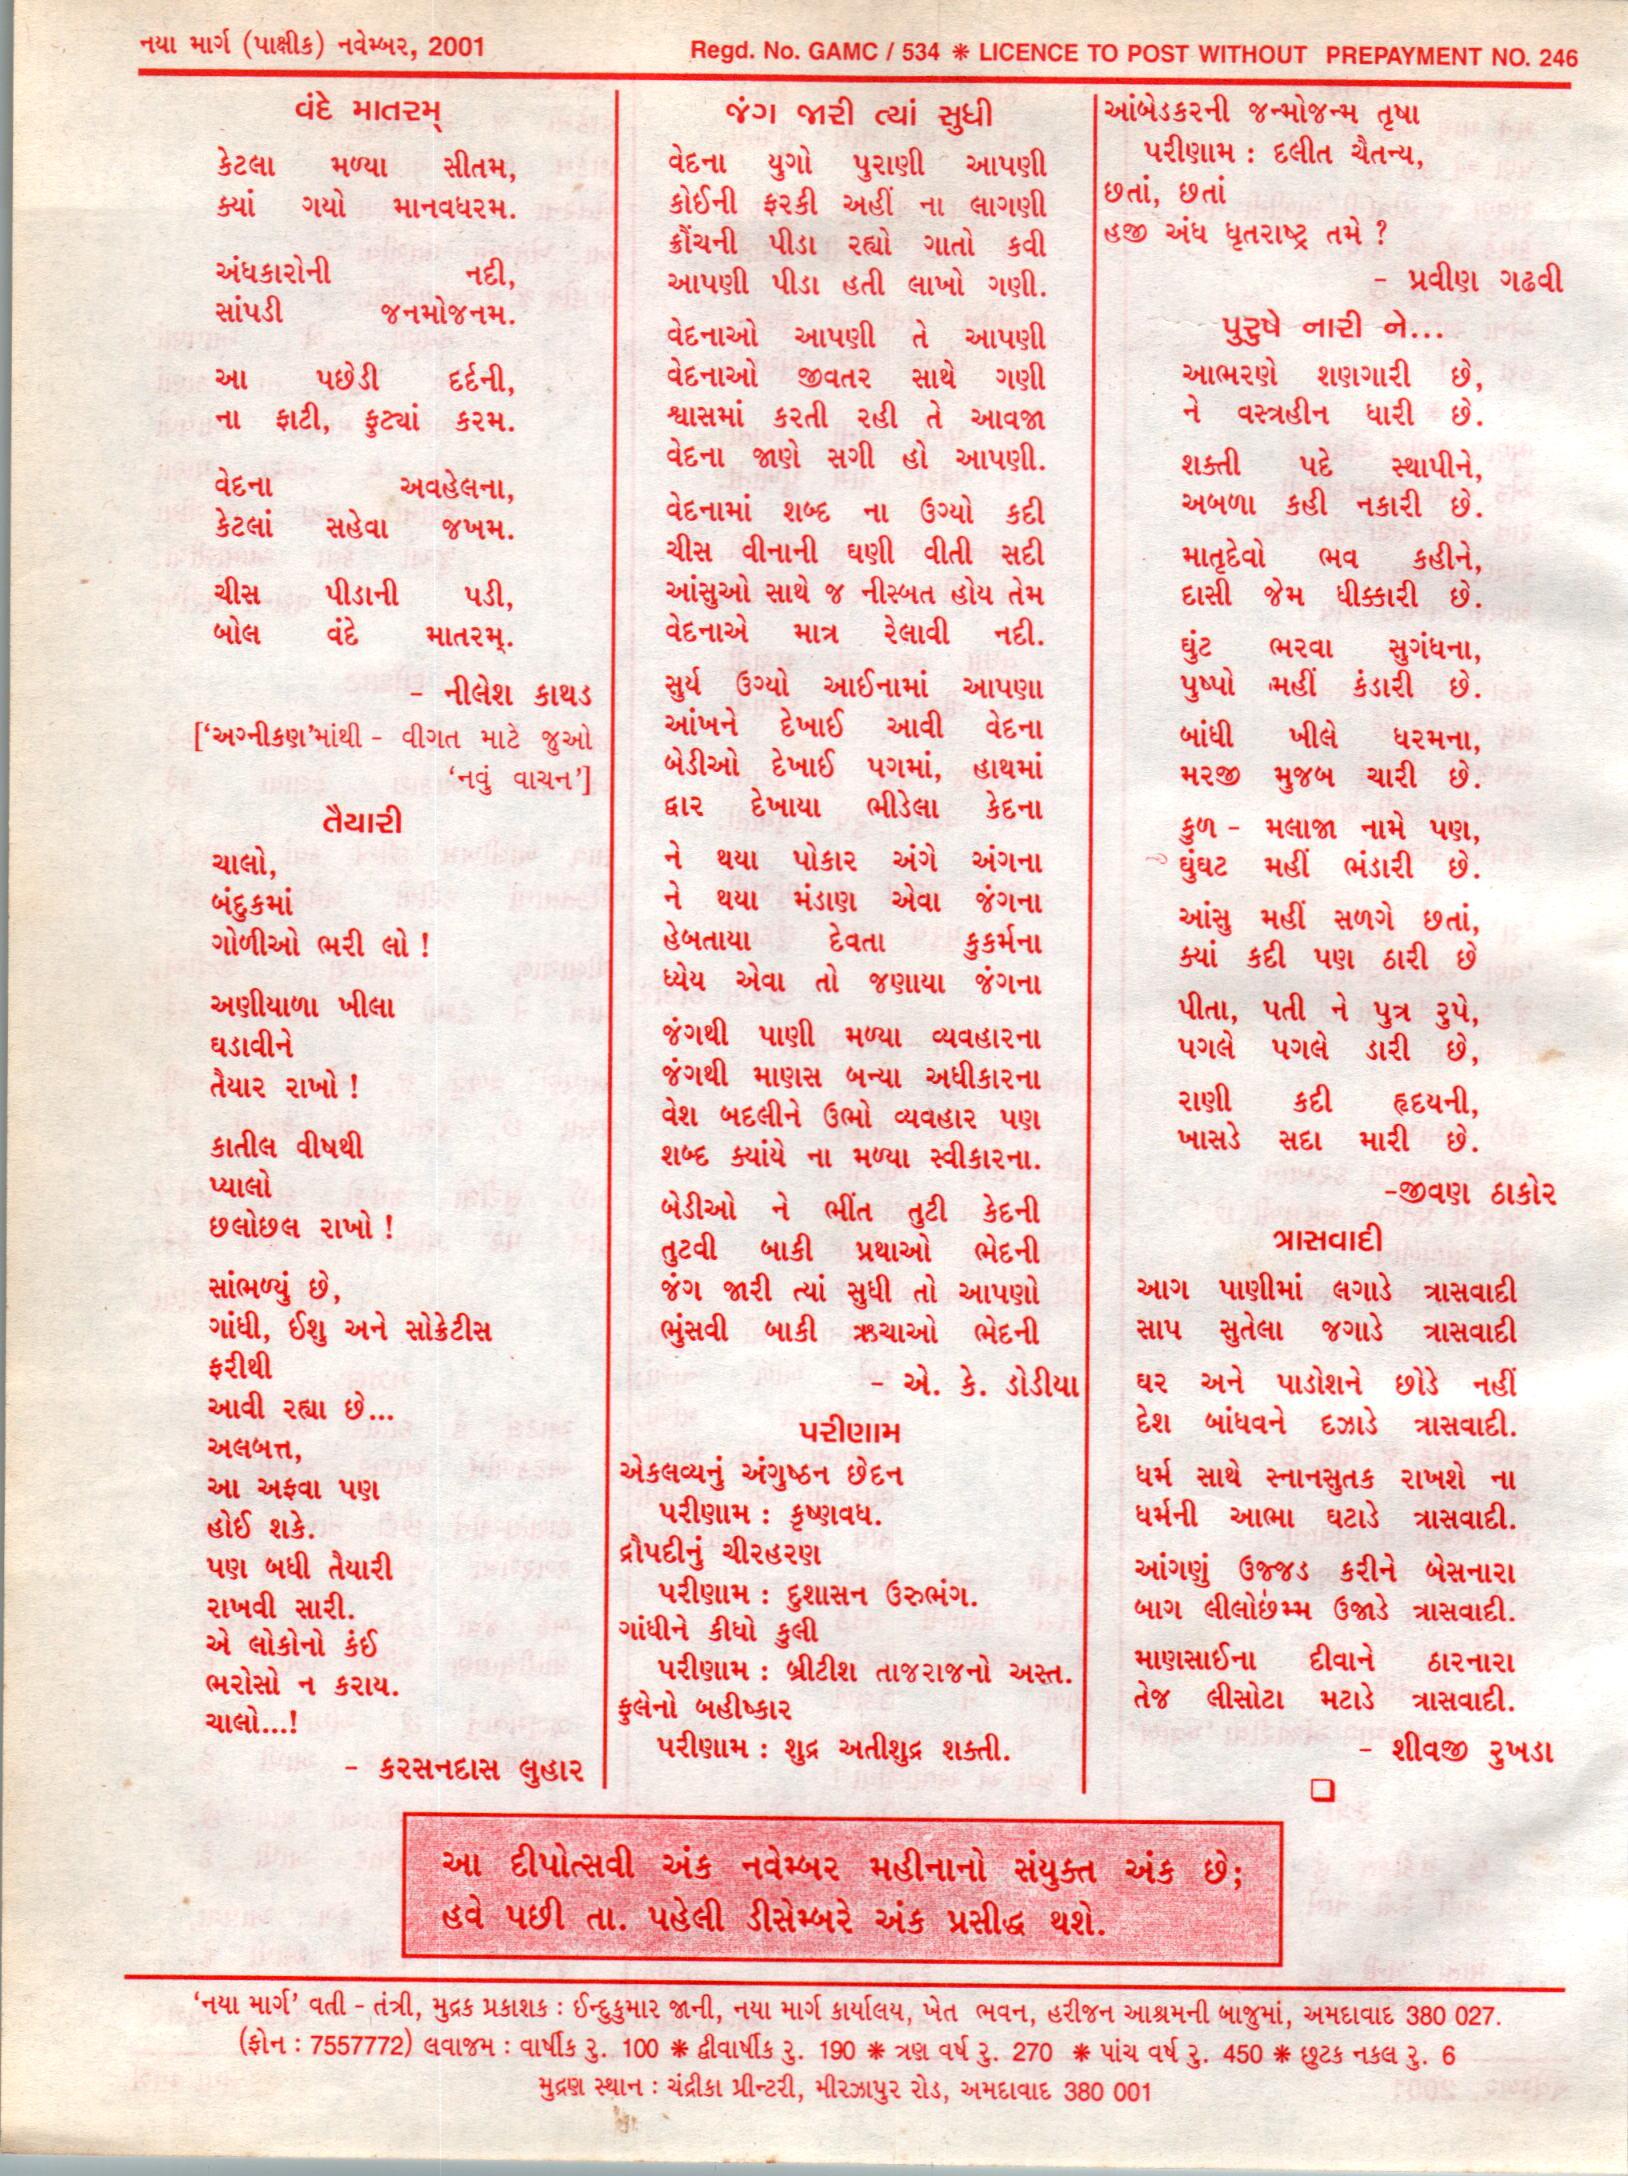 નયા માર્ગ (પાક્ષીક) નવેમ્બર, 2001
Regd. No. GAMC / 534 ✻ LICENCE TO POST WITHOUT PREPAYMENT NO. 246
વંદે માતરમ્
કેટલા મળ્યા સીતમ,
ક્યાં ગયો માનવધરમ.
અંધકારોની નદી,
સાંપડી જનમોજનમ.
આ પછેડી દર્દની,
ના ફાટી, ફુટ્યાં કરમ.
વેદના અવહેલના,
કેટલાં સહેવા જખમ.
ચીસ પીડાની પડી,
બોલ વંદે માતરમ્.
- નીલેશ કાથડ
[‘અગ્નીકણ’માંથી - વીગત માટે જુઓ
‘નવું વાચન’]
તૈયારી
ચાલો,
બંદુકમાં
ગોળીઓ ભરી લો !
અણીયાળા ખીલા
ઘડાવીને
તૈયાર રાખો !
કાતીલ વીષથી
પ્યાલો
છલોછલ રાખો !
સાંભળ્યું છે,
ગાંધી, ઈશુ અને સોક્રેટીસ
ફરીથી
આવી રહ્યા છે...
અલબત્ત,
આ અફવા પણ
હોઈ શકે.
પણ બધી તૈયારી
રાખવી સારી.
એ લોકોનો કંઈ
ભરોસો ન કરાય.
ચાલો...!
- કરસનદાસ લુહાર
જંગ જારી ત્યાં સુધી
વેદના યુગો પુરાણી આપણી
કોઈની ફરકી અહીં ના લાગણી
ક્રૌંચની પીડા રહ્યો ગાતો કવી
આપણી પીડા હતી લાખો ગણી.
વેદનાઓ આપણી તે આપણી
વેદનાઓ જીવતર સાથે ગણી
શ્વાસમાં કરતી રહી તે આવજા
વેદના જાણે સગી હો આપણી.
વેદનામાં શબ્દ ના ઉગ્યો કદી
ચીસ વીનાની ઘણી વીતી સદી
આંસુઓ સાથે જ નીસ્બત હોય તેમ
વેદનાએ માત્ર રેલાવી નદી.
સુર્ય ઉગ્યો આઈનામાં આપણા
આંખને દેખાઈ આવી વેદના
બેડીઓ દેખાઈ પગમાં, હાથમાં
દ્વાર દેખાયા ભીડેલા કેદના
ને થયા પોકાર અંગે અંગના
ને થયા મંડાણ એવા જંગના
હેબતાયા દેવતા કુકર્મના
ધ્યેય એવા તો જણાયા જંગના
જંગથી પાણી મળ્યા વ્યવહારના
જંગથી માણસ બન્યા અધીકારના
વેશ બદલીને ઉભો વ્યવહાર પણ
શબ્દ ક્યાંયે ના મળ્યા સ્વીકારના.
બેડીઓ ને ભીંત તુટી કેદની
તુટવી બાકી પ્રથાઓ ભેદની
જંગ જારી ત્યાં સુધી તો આપણો
ભુંસવી બાકી ઋચાઓ ભેદની
- એ. કે. ડોડીયા
પરીણામ
એકલવ્યનું અંગુષ્ઠન છેદન
પરીણામ : કૃષ્ણવધ.
દ્રૌપદીનું ચીરહરણ
પરીણામ : દુશાસન ઉરુભંગ.
ગાંધીને કીધો કુલી
પરીણામ : બ્રીટીશ તાજરાજનો અસ્ત.
ફુલેનો બહીષ્કાર
પરીણામ : શુદ્ર અતીશુદ્ર શક્તી.
આંબેડકરની જન્મોજન્મ તૃષા
પરીણામ : દલીત ચૈતન્ય,
છતાં, છતાં
હજી અંધ ધૃતરાષ્ટ્ર તમે ?
- પ્રવીણ ગઢવી
પુરુષે નારી ને...
આભરણે શણગારી છે,
ને વસ્ત્રહીન ધારી છે.
શક્તી પદે સ્થાપીને,
અબળા કહી નકારી છે.
માતૃદેવો ભવ કહીને,
દાસી જેમ ધીક્કારી છે.
ઘુંટ ભરવા સુગંધના,
પુષ્પો મહીં કંડારી છે.
બાંધી ખીલે ધરમના,
મરજી મુજબ ચારી છે.
કુળ - મલાજા નામે પણ,
ઘુંઘટ મહીં ભંડારી છે.
આંસુ મહીં સળગે છતાં,
ક્યાં કદી પણ ઠારી છે
પીતા, પતી ને પુત્ર રુપે,
પગલે પગલે ડારી છે,
રાણી કદી હૃદયની,
ખાસડે સદા મારી છે.
-જીવણ ઠાકોર
ત્રાસવાદી
આગ પાણીમાં લગાડે ત્રાસવાદી
સાપ સુતેલા જગાડે ત્રાસવાદી
ઘર અને પાડોશને છોડે નહીં
દેશ બાંધવને દઝાડે ત્રાસવાદી.
ધર્મ સાથે સ્નાનસુતક રાખશે ના
ધર્મની આભા ઘટાડે ત્રાસવાદી.
આંગણું ઉજ્જડ કરીને બેસનારા
બાગ લીલોછંમ્મ ઉજાડે ત્રાસવાદી.
માણસાઈના દીવાને ઠારનારા
તેજ લીસોટા મટાડે ત્રાસવાદી.
- શીવજી રુખડા
આ દીપોત્સવી અંક નવેમ્બર મહીનાનો સંયુક્ત અંક છે;
હવે પછી તા. પહેલી ડીસેમ્બરે અંક પ્રસીદ્ધ થશે.
‘નયા માર્ગ’ વતી - તંત્રી, મુદ્રક પ્રકાશક : ઈન્દુકુમાર જાની, નયા માર્ગ કાર્યાલય, ખેત ભવન, હરીજન આશ્રમની બાજુમાં, અમદાવાદ 380 027.
(ફોન : 7557772) લવાજમ : વાર્ષીક રુ. 100 ✻ દ્વીવાર્ષીક રુ. 190 ✻ ત્રણ વર્ષ રુ. 270 ✻ પાંચ વર્ષ રુ. 450 ✻ છુટક નકલ રુ. 6
મુદ્રણ સ્થાન : ચંદ્રીકા પ્રીન્ટરી, મીરઝાપુર રોડ, અમદાવાદ 380 001